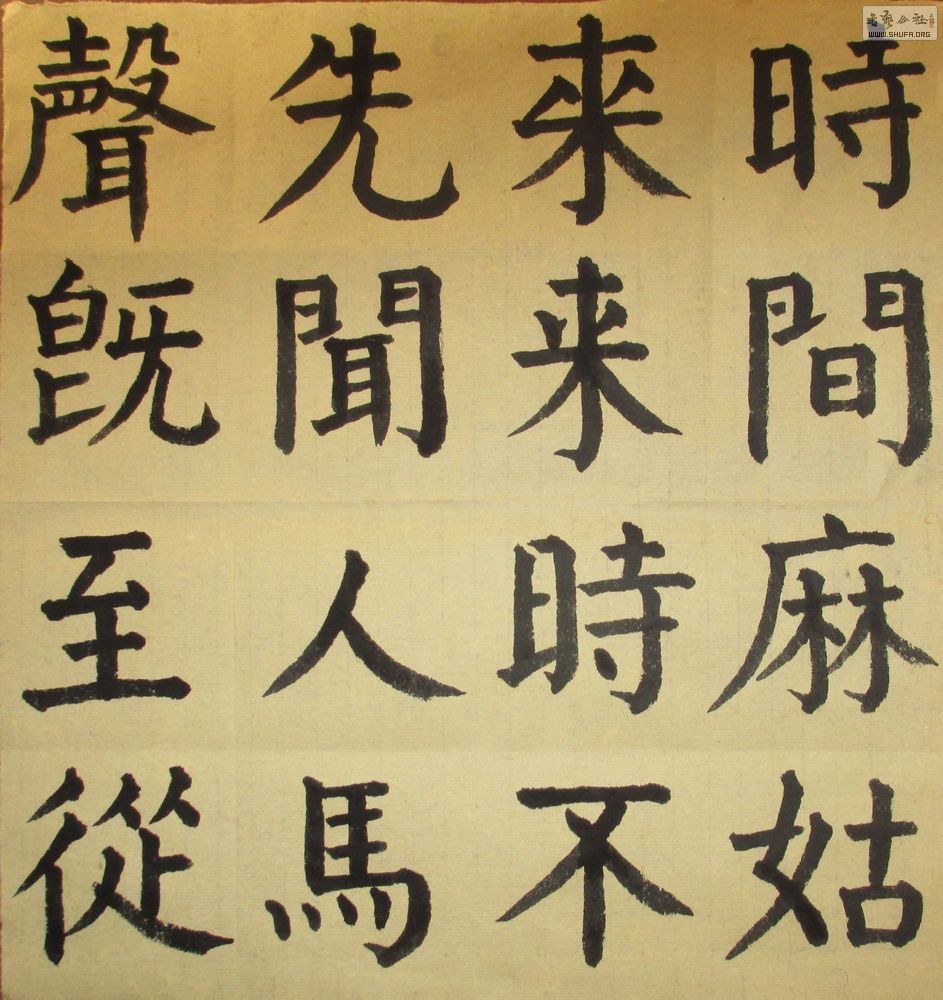 時間麻姑
來来時不
先聞人馬
聲既至從
WWW.SHUFA.ORG